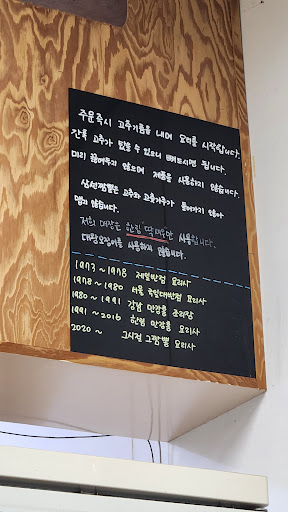 주문즉시 고추기름을 내며 요리를 시작합니다.
간혹 고추가 있을 수 있으니 빼드시면 됩니다.
미리 끓여두지 않으며 제품을 사용하지 않습니다.
삼선짬뽕은 고추와 고춧가루가 들어가지 않아
맵지 않습니다.
저희 매장은 한림 사용합니다.
대왕오징어를 사용하지 않습니다.
1973 ~ 1978 제일반점 요리사
1978 ~ 1980 서울 국일대반점 요리사
1980 ~ 1991 강남 만강홍 조리장
1991 ~ 2016 한림 만강홍 요리사
2020 ~ 그시절 그짬뽕 요리사